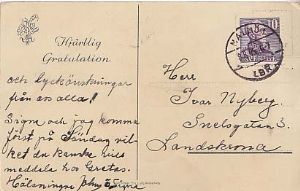 Hjärtlig
Gratulation
och lyckönskningar
från oss alla!
Signe och jag komma
först på Söndag vil-
ket du kanske vill
meddela hos Gretas.
Hälsningar
MALMÖ 1
LBR
10
Herr
Ivar Nyberg.
Snelsgatan 3.
Landskrona